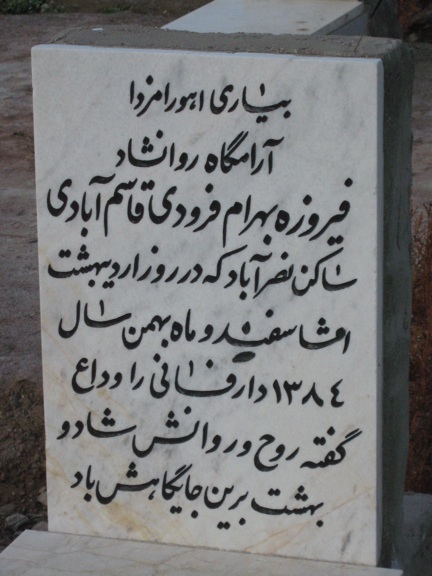 بیاری اهورامزدا
آرامگاه روانشاد
فیروزه بهرام فرودی قاسم آبادی
ساکن نصرآباد که در روز اردیبهشت
امشاسفند و ماه بهمن سال
۱۳۸۴ دار فانی را وداع
گفته روح و روانش شاد و
بهشت برین جایگاهش باد